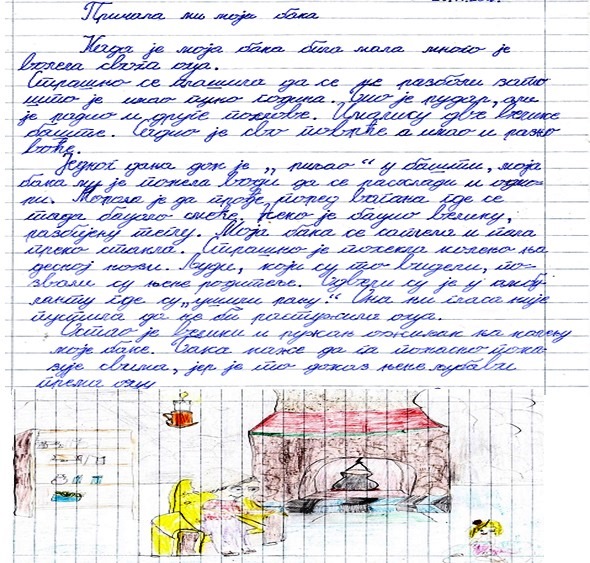 Причала ми моја бака
Када је моја бака била мала много је
волела свога оца.
Страшно се плашила да се не разболи зато
што је имао пуно година. Био је рудар, али
је радио и друге послове. Имали су две велике
баште. Садио је све поврће а имао и разно
воће.
Једног дана док је „ риљао “ у башти, моја
бака му је понела воде да се расхлади и одмо-
ри. Морала је да прође поред где се
тада бацало смеће. Неко је бацио велику,
разбијену теглу. Моја бака се саплела и пала
преко стакла. Страшно је посекла колено на
десној нози. Људи, који су то видели, по-
звали су њене родитеље. Одвели су је у амбу-
ланту где су „ушили рану“ Она ни гласа није
пустила да не би растужила оца.
Остао је велики и ружан ожиљак на колену
моје баке. Бака каже да га поносно пока-
зује свима, јер је то доказ њене љубави
према оцу